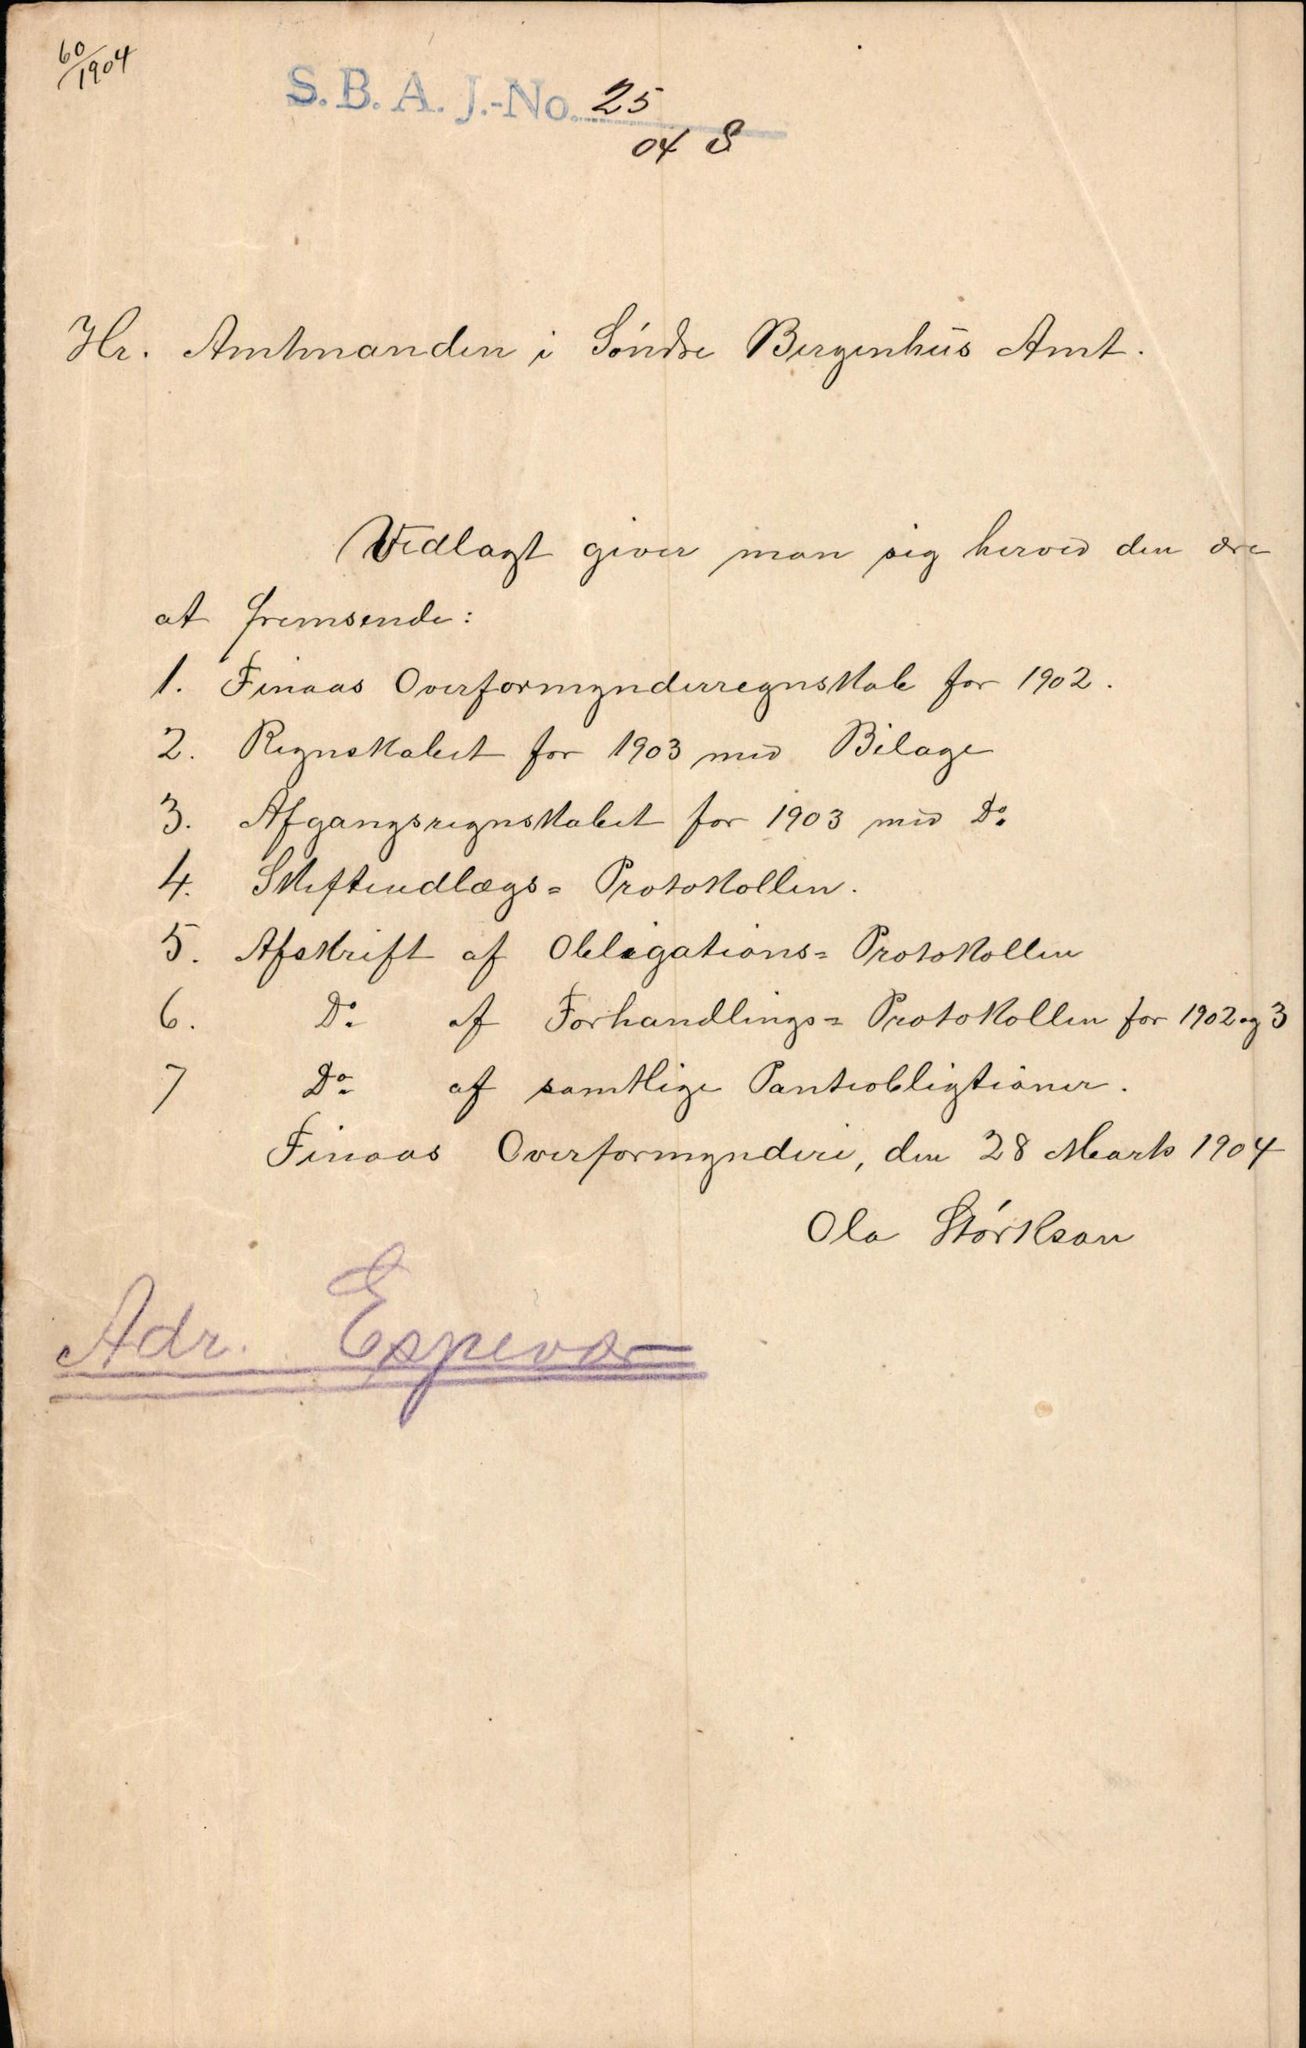 60/1904
S. B. A. J.-No. 25
04 S
Hr. Amtmanden i Söndre Bergenhus Amt.
Vedlagt giver man sig herved den ære
at fremsende:
1. Finaas Overformynderregnskab for 1902.
2. Regnskabet for 1903 med Bilage
3. Afgangsregnskabet for 1903 med Do
4. Skifteudlægs= Protokollen.
5. Afskrift af Obligations= Protokollen
6. Do af Forhandlings= Protokollen for 1902 og 3
7 Do af samtlige Panteobligtioner.
Finaas Overformynderi, den 28 Marts 1904
Ola Störkson
Adr. Espevær